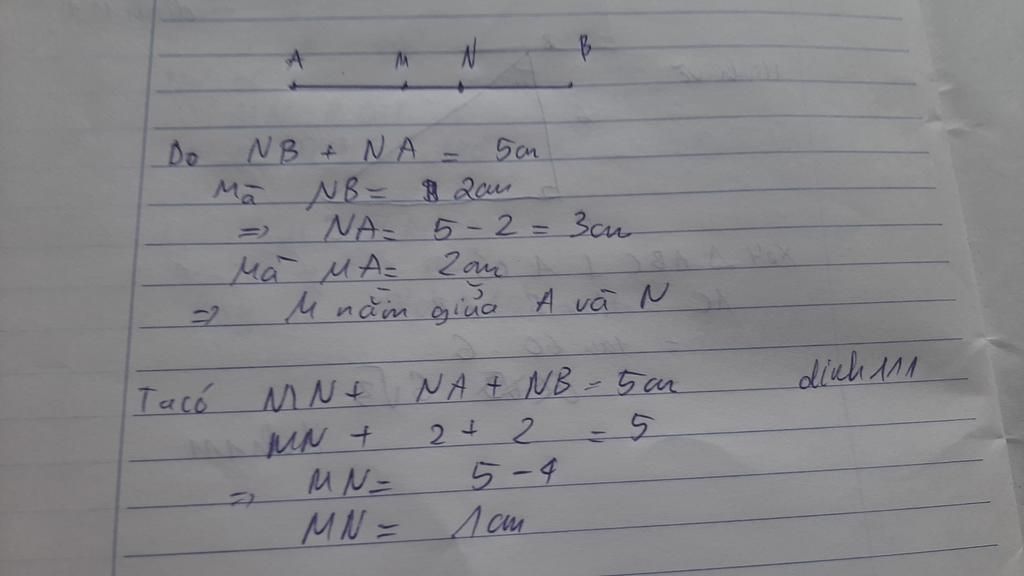 A M N B
Do NB + NA = 5cm
Mà NB = 2cm
=> NA = 5 - 2 = 3cm
Mà MA = 2cm
=> M nằm giữa A và N
Ta có MN + NA + NB = 5cm dinh111
MN + 2 + 2 = 5
=> MN = 5 - 4
MN = 1cm